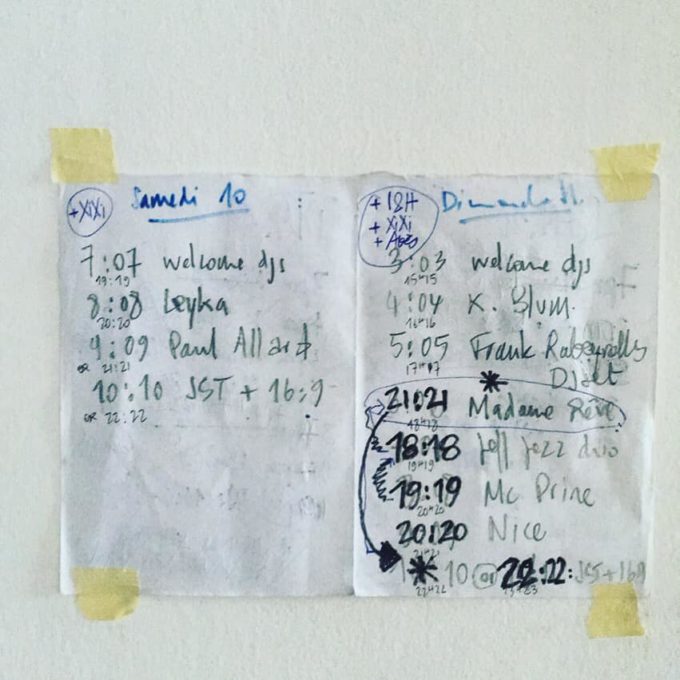 +XiXi
Samedi 10
7:07 welcome djs
19:19
8:08 Leyka
20:20
9:09 Paul Allard
or 21:21
10:10 JST + 16:9
or 22:22
+ 18H
+ XiXi
Dimanche 11
3:03 welcome djs
15H15
4:04 K. Blum.
16H16
5:05 Frank Rabeyrolles
17H17
DJset
21:21 Madame Rêve
18H18
18:18 Jeff jazz duo
19H19
19:19 Mc Prine
20H20
20:20 Nice
21H21
* 10 or 22:22: JST + 16:9
22H22